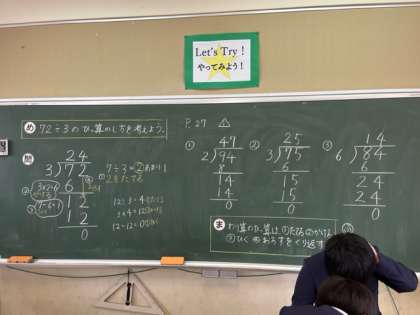 Let's Try!
やってみよう!
め 72÷3のひっ算のしかたを考えよう。
問
24
3)72
6
12
12
0
7÷3=2あまり1
2をたてる
3×2=6
7-6=1
12÷3=4
3×4=12
12-12=0
P.27
①
47
2)94
8
14
14
0
②
25
3)75
6
15
15
0
③
14
6)84
6
24
24
0
ま わり算のひっ算は、①たてる②かける
③ひく④おろすをくり返す